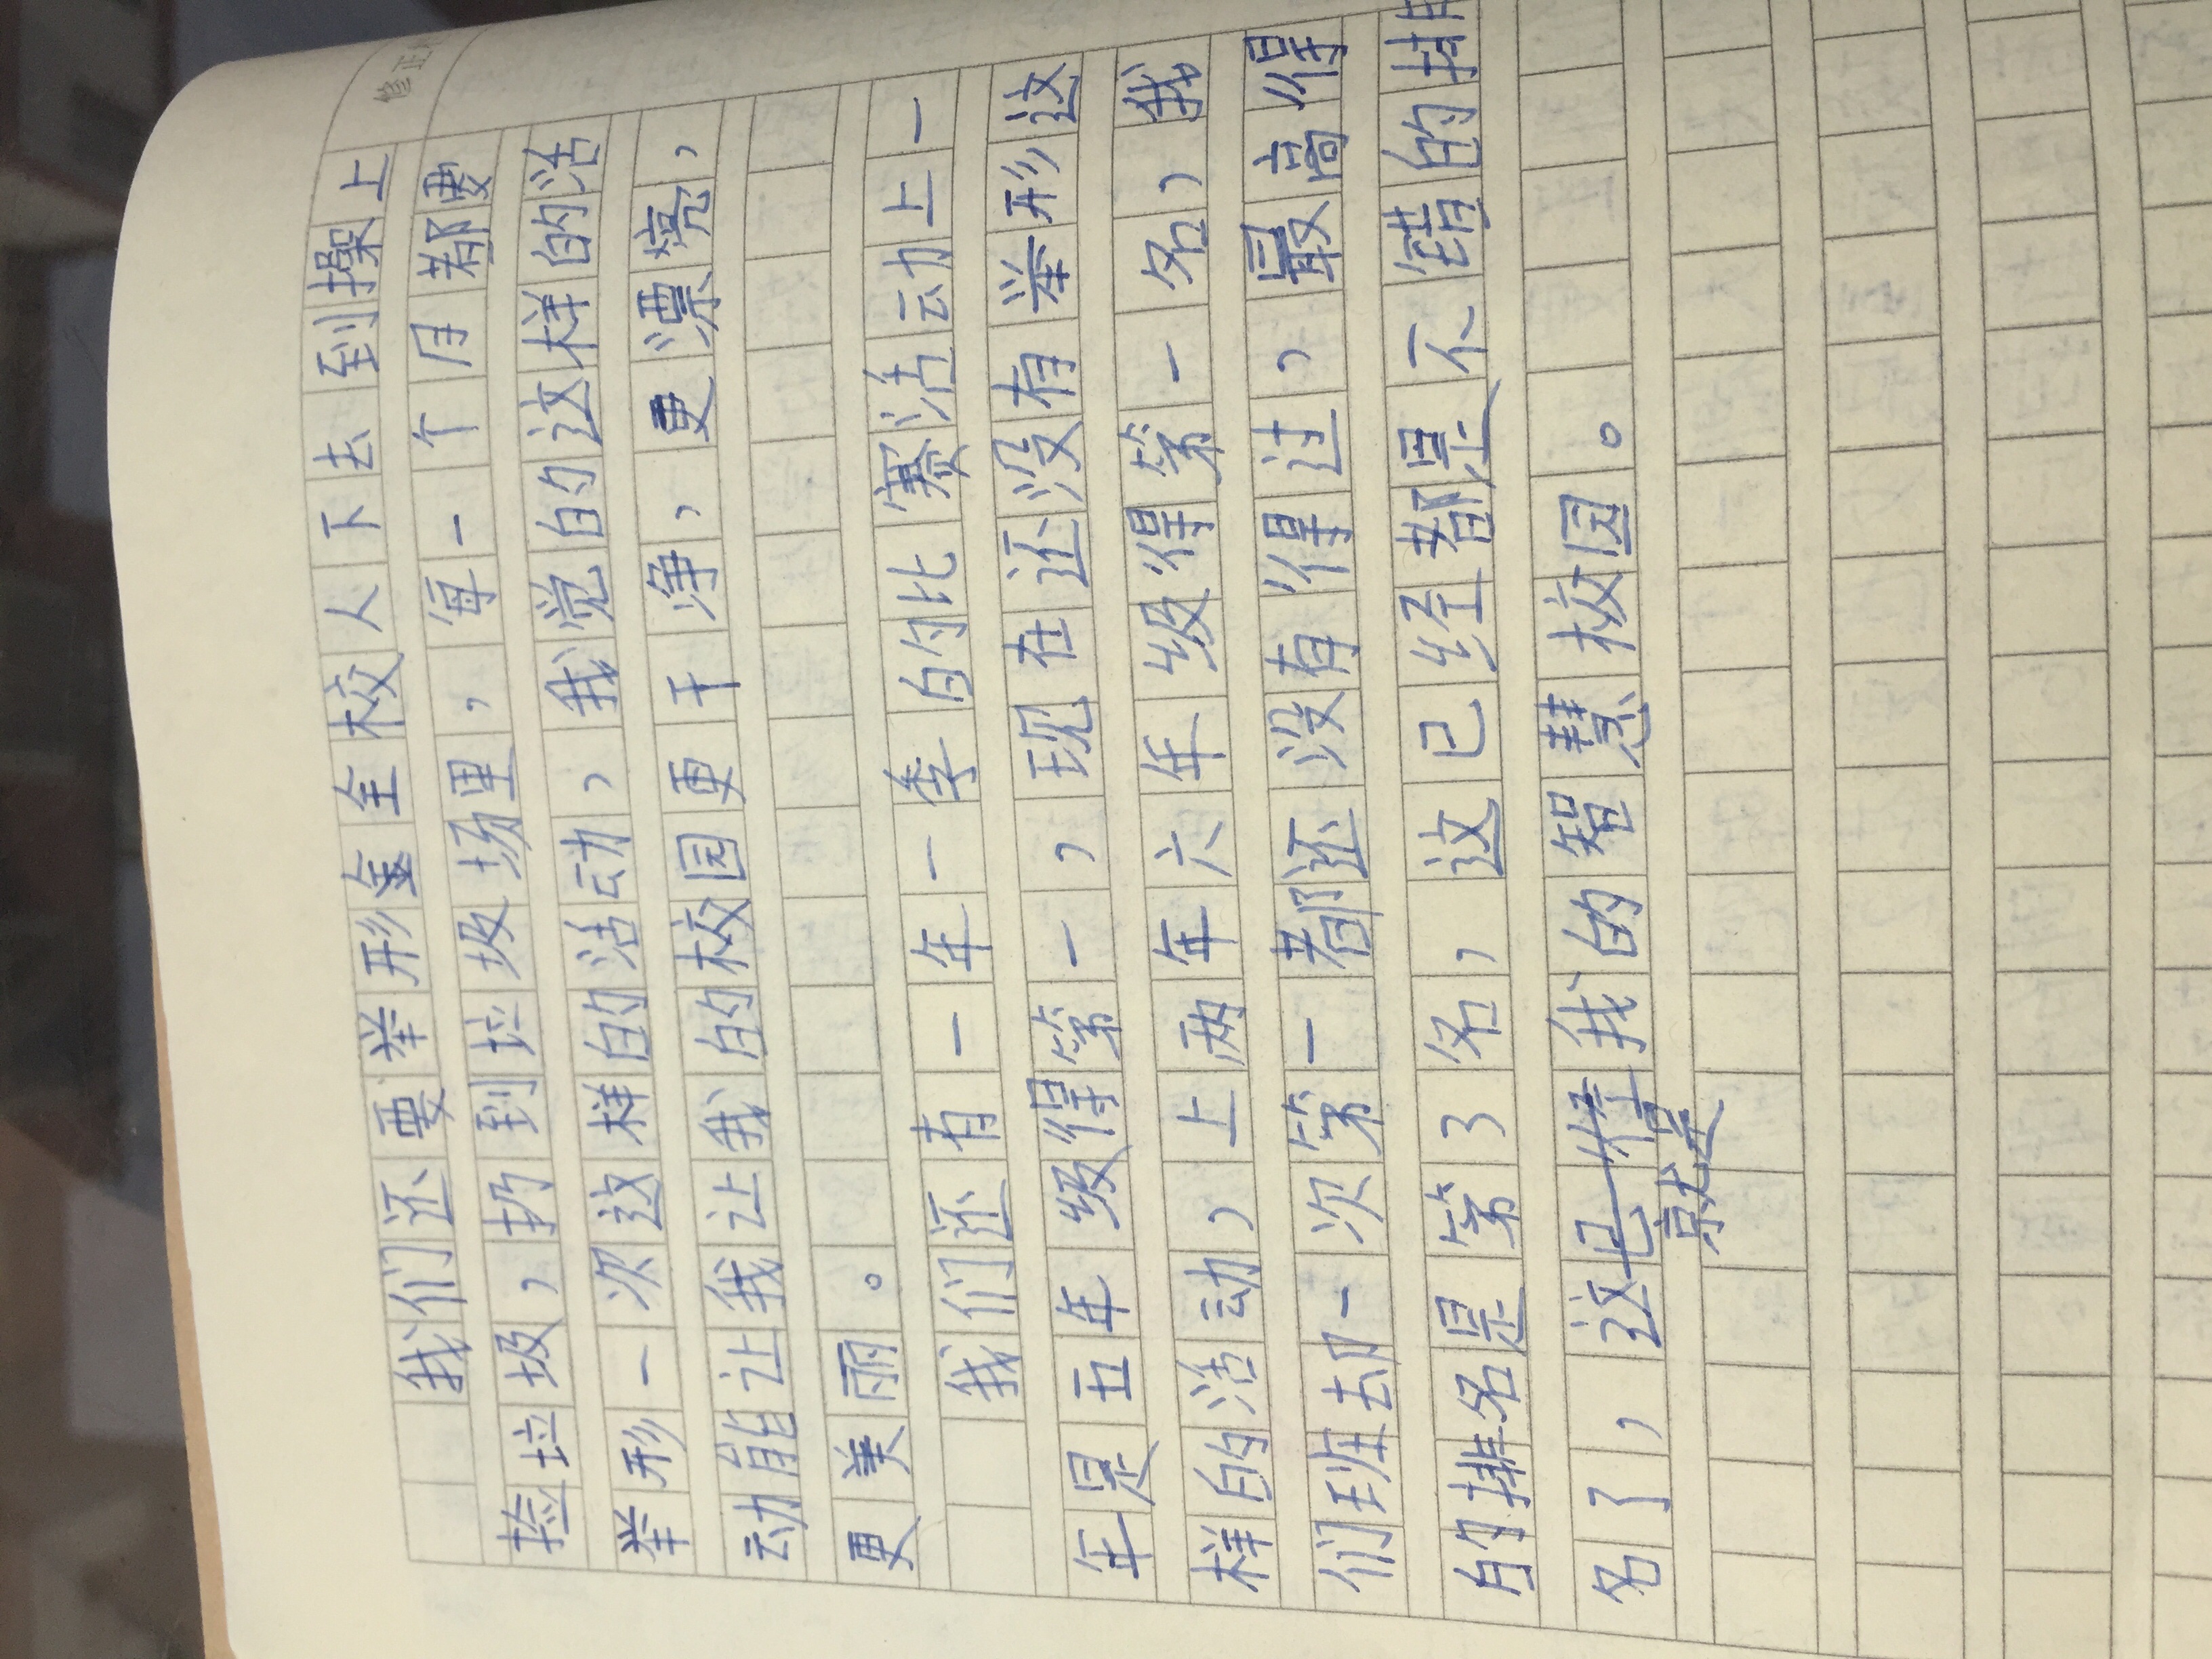 修正
我们还要举形全全校人下去到操上
捡垃圾，扔到垃圾场里，每一个月都要
举形一次这样的活动，我觉的这样的活
动能让我让我的校园更干净，更漂亮，
更美丽。
我们还有一年一季的比赛活动上一
年是五年级得第一，现在还没有举形这
样的活动，上两年六年级得第一名，我
们班去却一次第一都还没有得过，最高得
的排名是第3名，这已经都是不错的排
名了，这就是我的智慧校园。